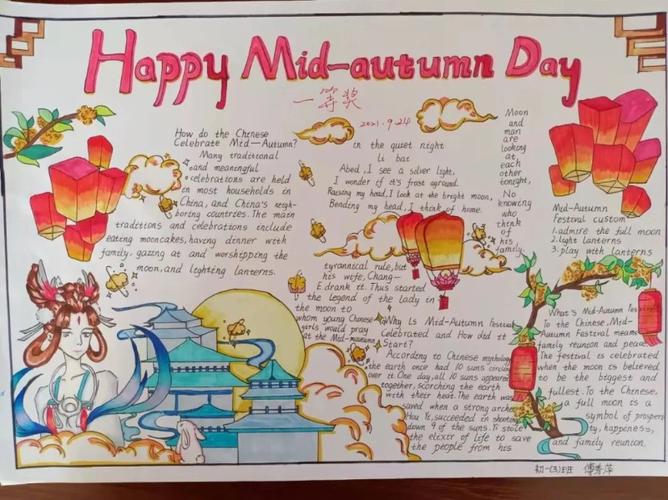 Happy Mid-autumn Day
一等奖
2021.9.24
How do the Chinese
Celebrate Mid-Autumn?
Many traditional
and meaningful
celebrations are held
in most households in
China, and China's neigh-
boring countries. The main
traditions and celebrations include
eating mooncakes, having dinner with
family, gazing at and worshipping the
moon, and lighting lanterns.
in the quiet night
Li bai
Abed, I see a silver light,
I wonder if it's frost aground.
Raising my head, I look at the bright moon,
Bending my head, I think of home.
Moon
and
man
are
looking
at
each
other
tonight,
No
knowing
who
think
of
his
family.
Mid-Autumn
Festival custom
1.admire the full moon
2.light lanterns
3.play with lanterns
tyrannical rule, but
his wife, Chang-
E drank it. Thus started
the legend of the lady in
the moon to
whom young Chinese
girls would pray
at the Mid-
Why Is Mid-Autumn Festival
Celebrated and How did it
Start?
According to Chinese mythology
the earth once had 10 suns
over it. One day, all 10 suns appeared
together, Scorching the earth
with their heat. The earth was
saved when a strong archer
Hou Yi, succeeded in shooting
down 9 of the suns. Yi stole
the elixir of life to save
the people from his
What's Mid-Autumn Festival
To the Chinese, Mid-
Autumn Festival means
family reunion and peace.
The festival is celebrated
when the moon is believed
to be the biggest and
fullest. To the Chinese,
a full moon is a
symbol of prosperi
ty, happiness,
and family reunion.
初一(3)班 傅秀萍